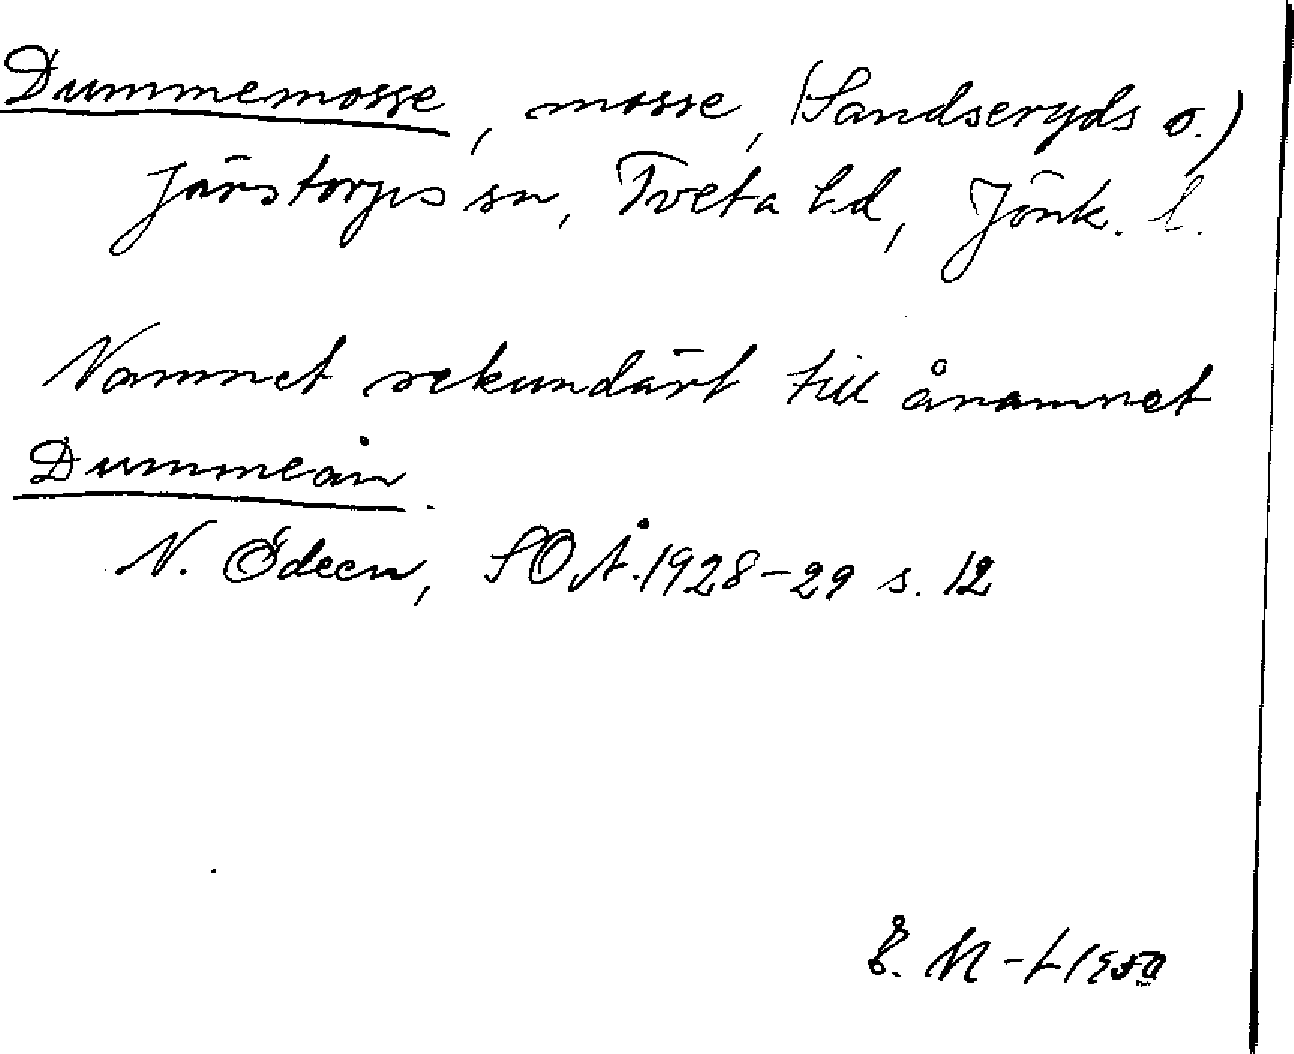 Dummemosse, mosse, (Sandseryds o.)
Järstorps sn, Tveta hd, Jönk. l.
Namnet sekundärt till ånamnet
Dummeån.
N. Ödeen, SOÅ. 1928-29 s. 12
E. M-L 1950